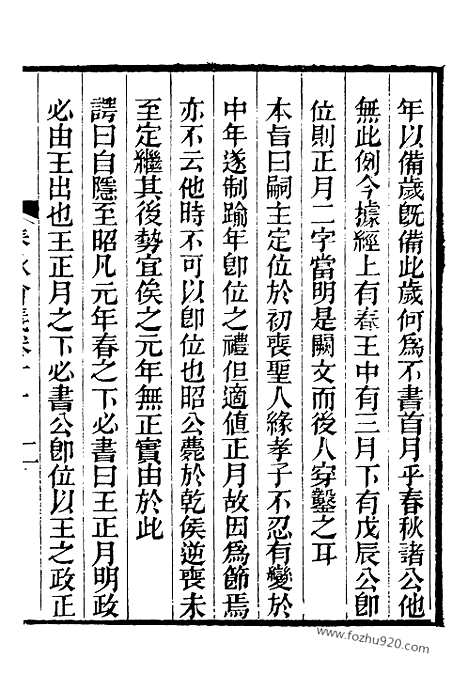 年以備歲旣備此歲何爲不書首月乎春秋諸公他
無此例今據經上有春王中有三月下有戊辰公卽
位則正月二字當明是闕文而後人穿鑿之耳
本旨曰嗣主定位於初喪聖人緣孝子不忍有變於
中年遂制踰年卽位之禮但適値正月故因爲節焉
亦不云他時不可以卽位也昭公薨於乾侯逆喪未
至定繼其後勢宜俟之元年無正實由於此
諤曰自隱至昭凡元年春之下必書曰王正月明政
必由王出也王正月之下必書公卽位以王之政正
www.fozhu920.com